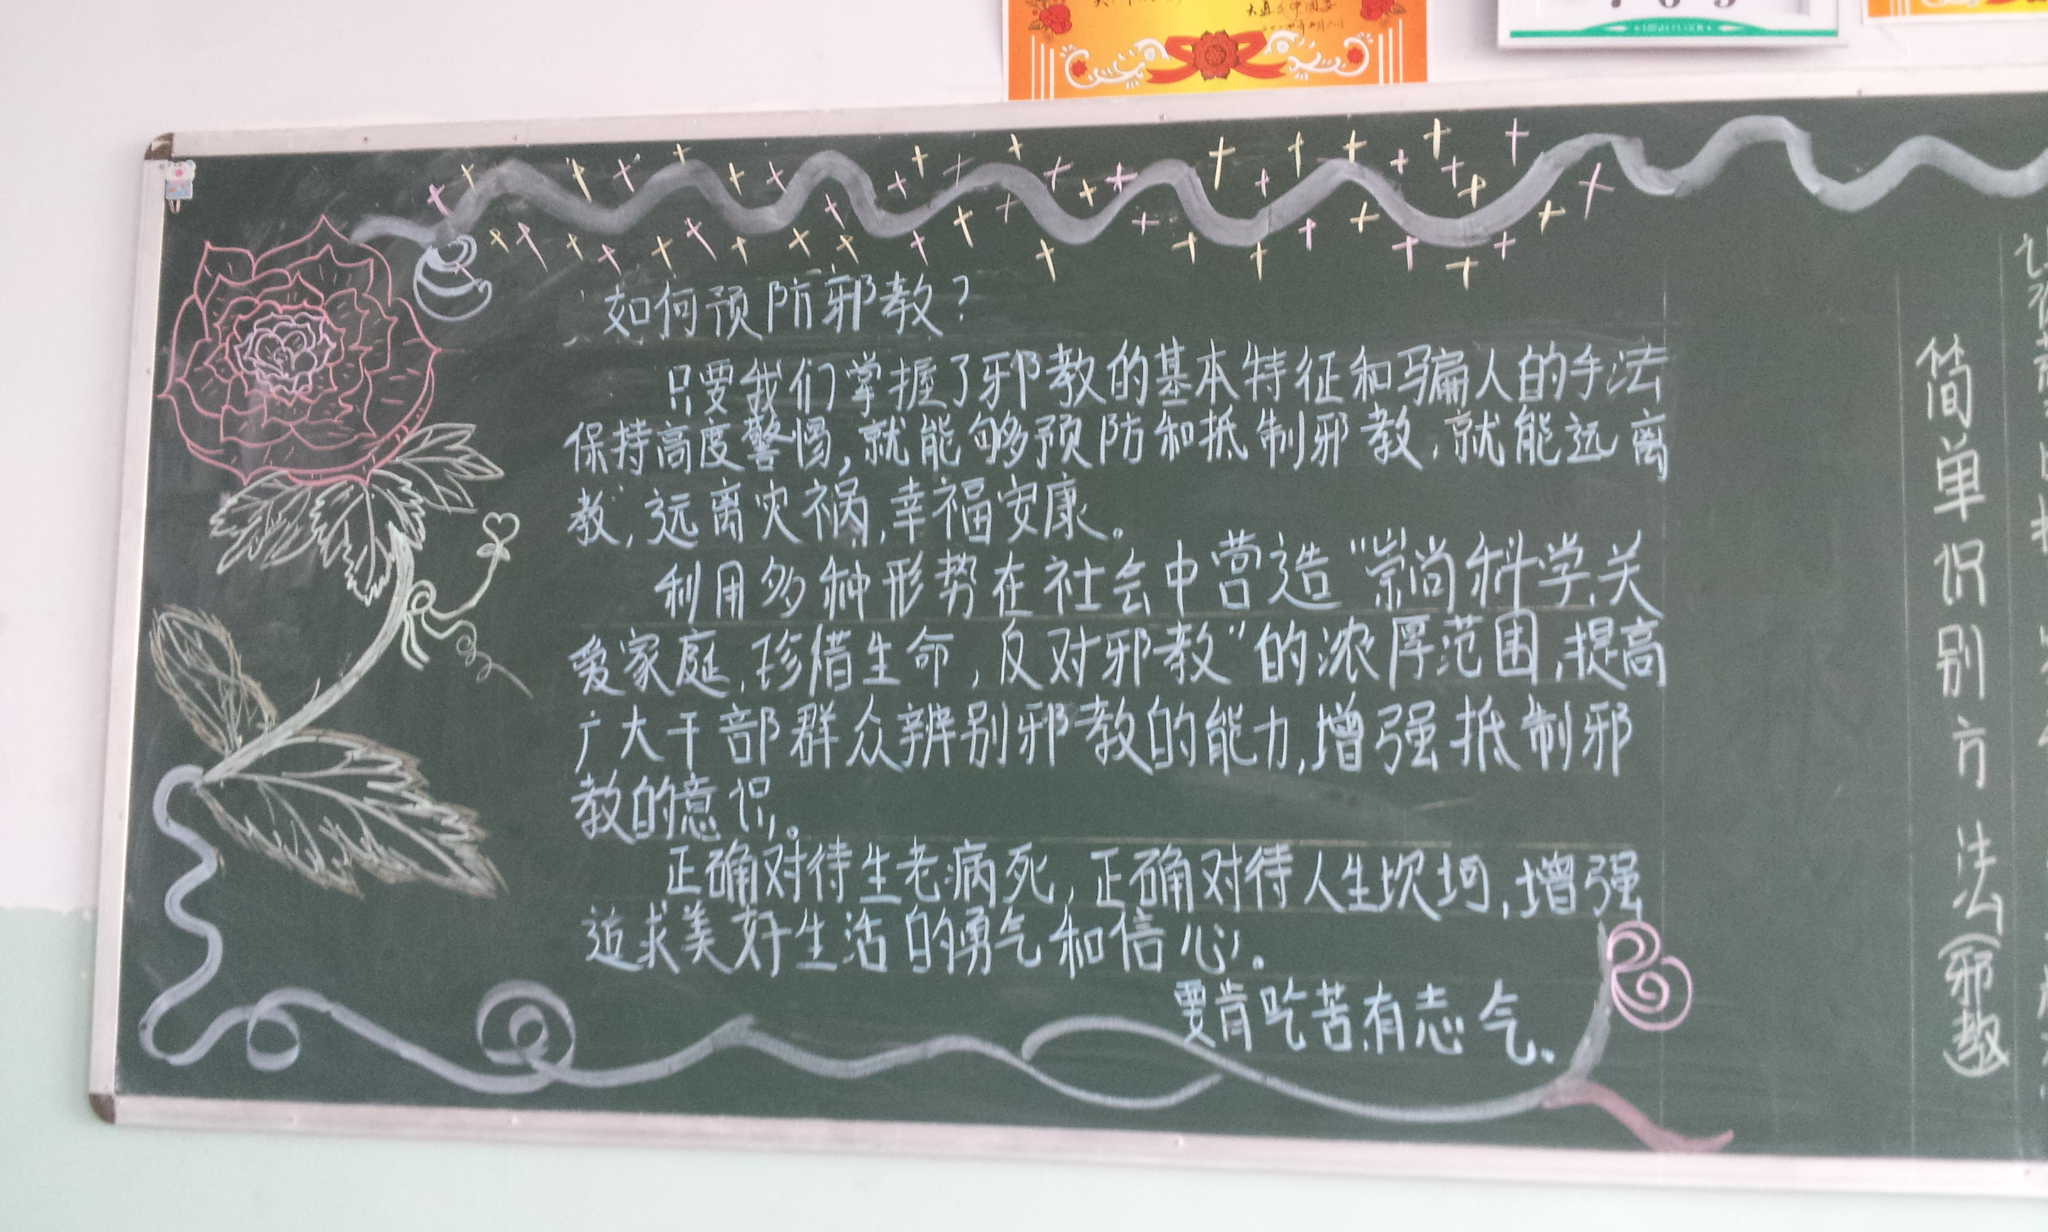 如何预防邪教？
只要我们掌握了邪教的基本特征和骗人的手法
保持高度警惕，就能够预防和抵制邪教，就能远离
教，远离灾祸，幸福安康。
利用多种形势在社会中营造“崇尚科学、关
爱家庭，珍惜生命，反对邪教”的浓厚范围，提高
广大干部群众辨别邪教的能力，增强抵制邪
教的意识。
正确对待生老病死，正确对待人生坎坷，增强
追求美好生活的勇气和信心。
要肯吃苦，有志气。
简单识别方法（邪教）